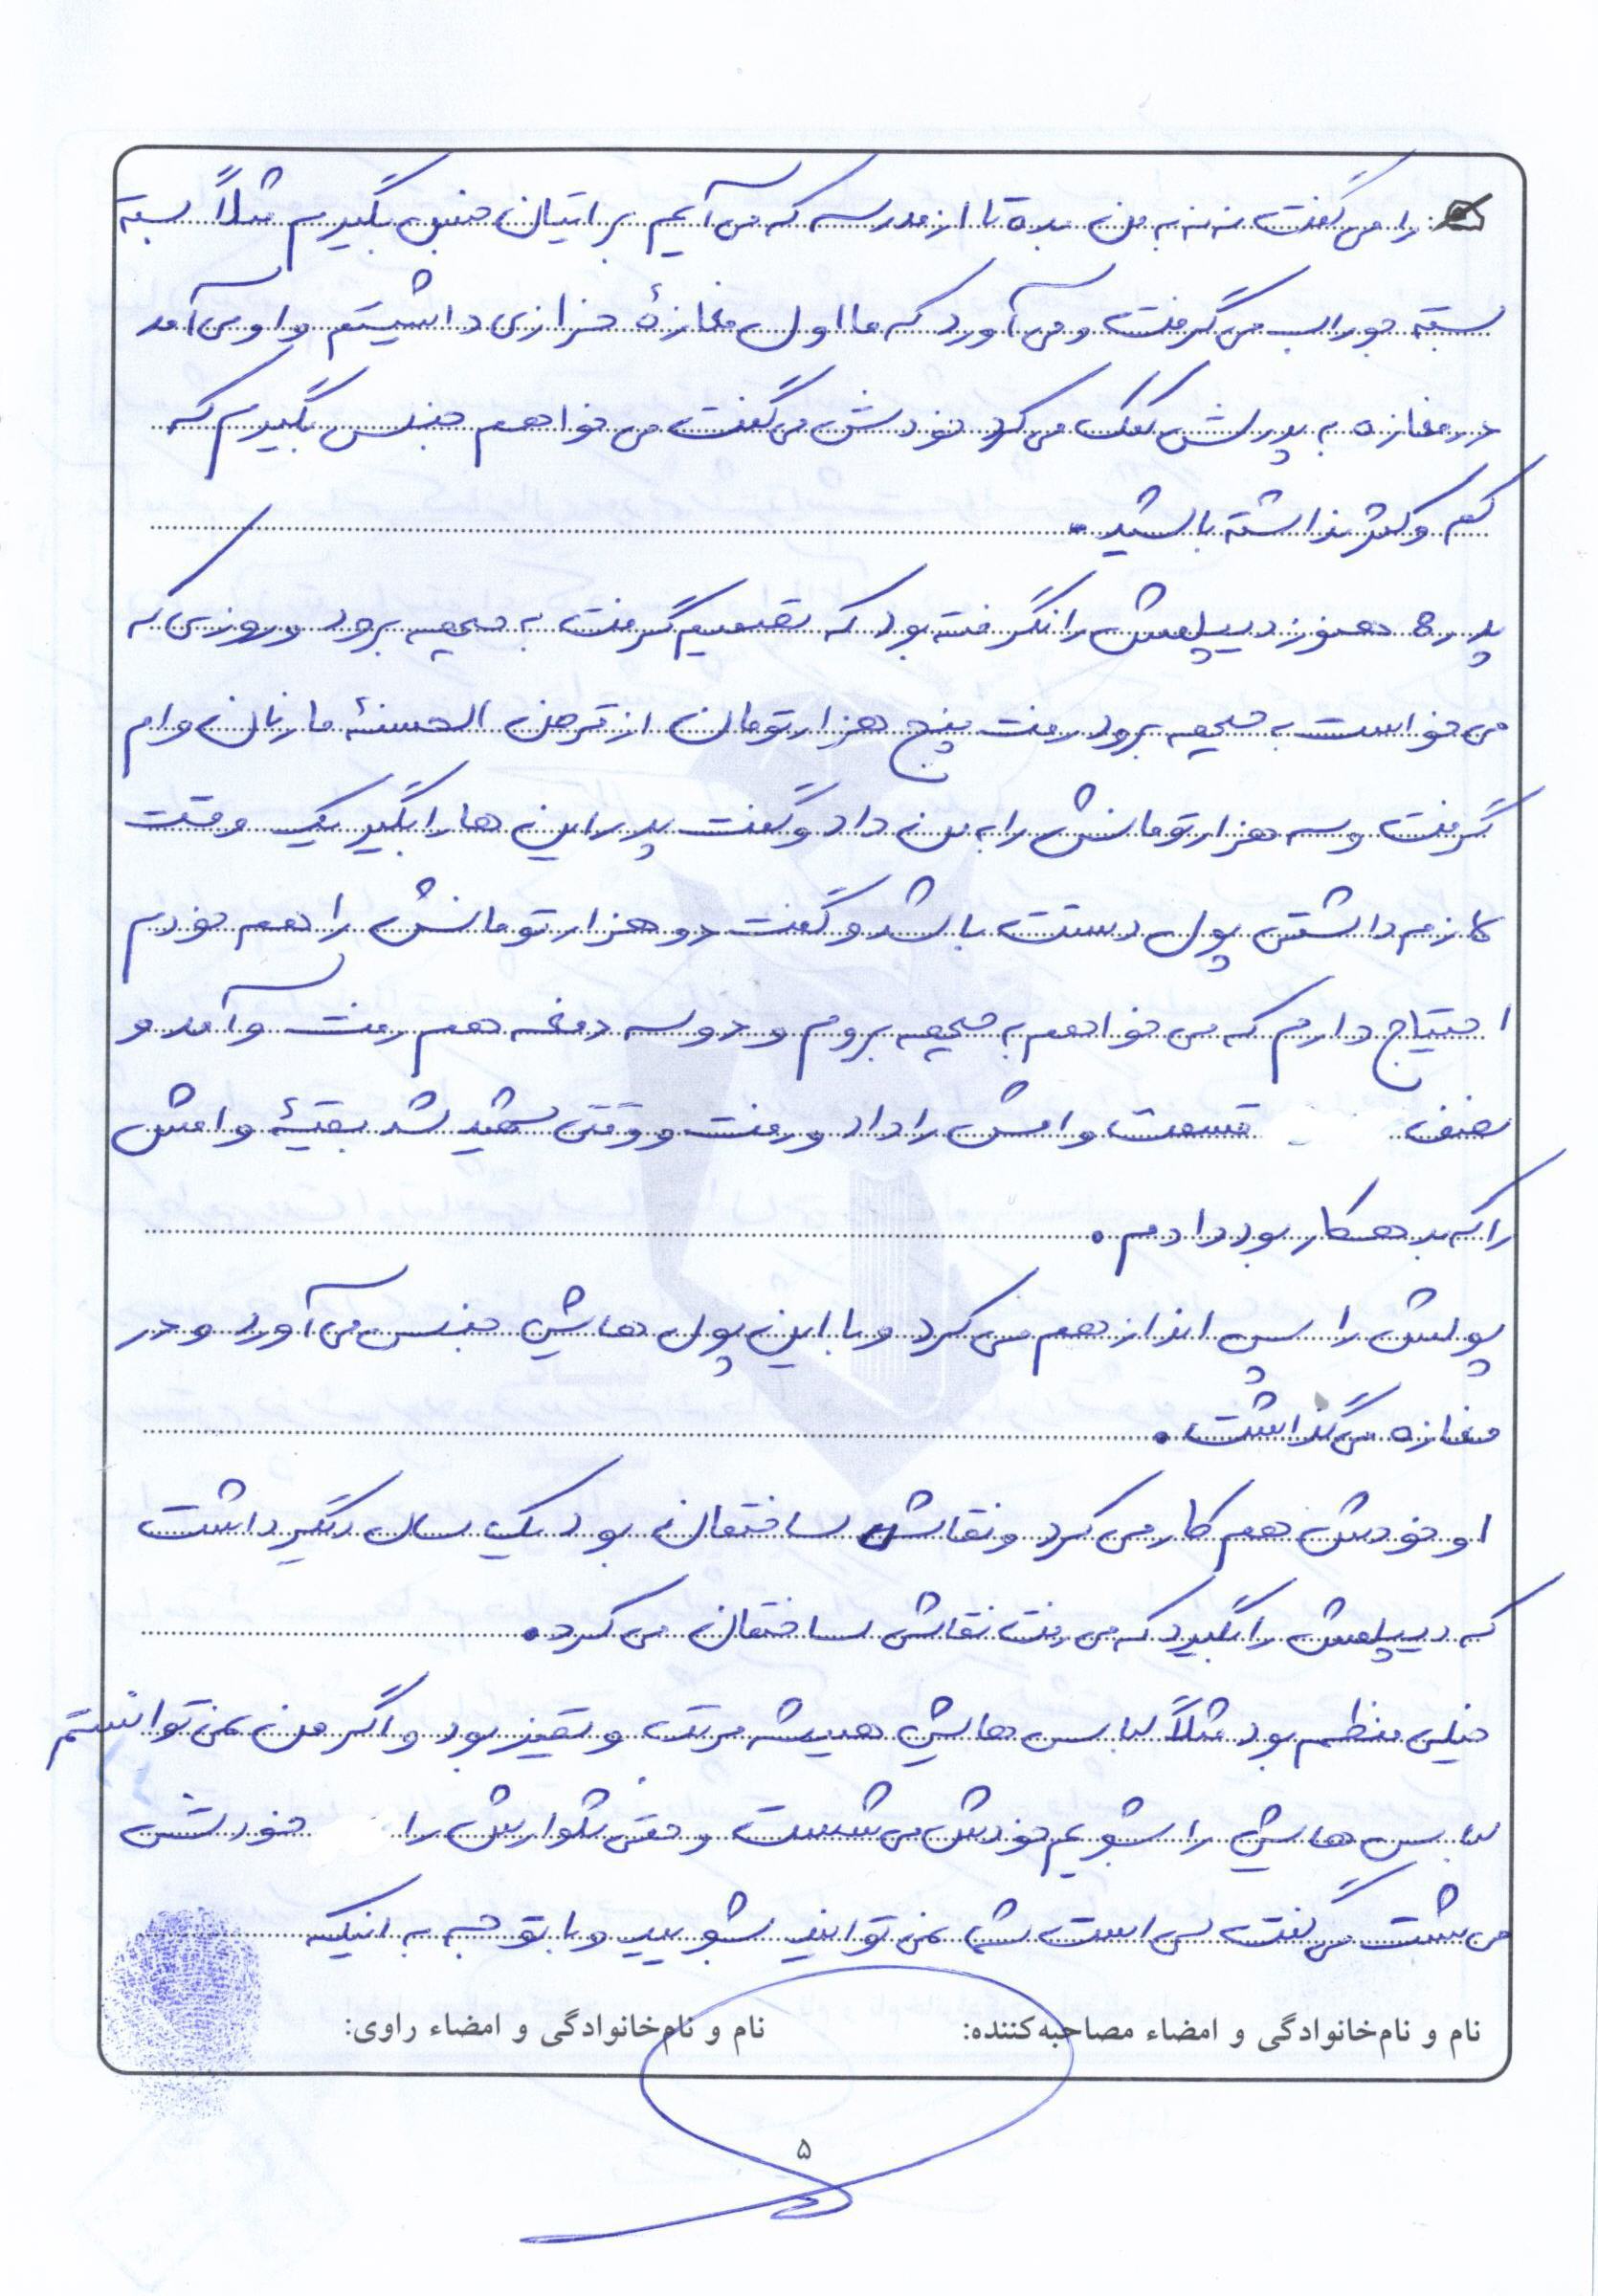 را می گفت ننه به من بده تا از مدرسه که می آیم براتیان جنس بگیرم مثلاً بسته
بسته جوراب می گرفت و می آورد که ما اول مغازهٔ خرازی داشتیم و او می آمد
در مغازه به پدرش کمک می کرد خودش می گفت می خواهم جنس بگیرم که
کم و کثر نداشته باشید.
پدره هنوز دیپلمش را نگرفته بود که تصمیم گرفت به جبهه برود و روزی که
می خواست به جبهه برود رفت پنج هزار تومان از قرض الحسنهٔ مازنان وام
گرفت و سه هزار تومانش را به من داد و گفت پدر این ها را بگیر یک وقت
لازم داشتی پول دستت باشد و گفت دو هزار تومانش را هم خودم
احتیاج دارم که می خواهم به جبهه بروم و دو سه دفعه هم رفت و آمد و
نصف قسمت وامش را داد و رفت و وقتی شهید شد بقیهٔ وامش
را که بدهکار بود دادم.
پولش را پس انداز هم می کرد و با این پول هایش جنس می آورد و در
مغازه می گذاشت.
او خودش هم کار می کرد و نقاش ساختمان بود یک سال دیگر داشت
که دیپلمش را بگیرد که می رفت نقاشی ساختمان می کرد.
خیلی منظم بود مثلاً لباس هایش همیشه مرتب و تمیز بود و اگر من نمی توانستم
لباس هایش را بشویم خودش می شست و حتی شلوارش را خودش
می شست می گفت بس است شما نمی توانید بشویید و با توجه به اینکه
نام و نام‌خانوادگی و امضاء مصاحبه‌کننده: نام و نام‌خانوادگی و امضاء راوی:
۵